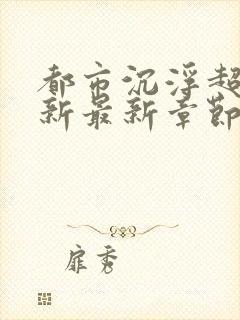 都市沉浮超
新最新章节
扉秀